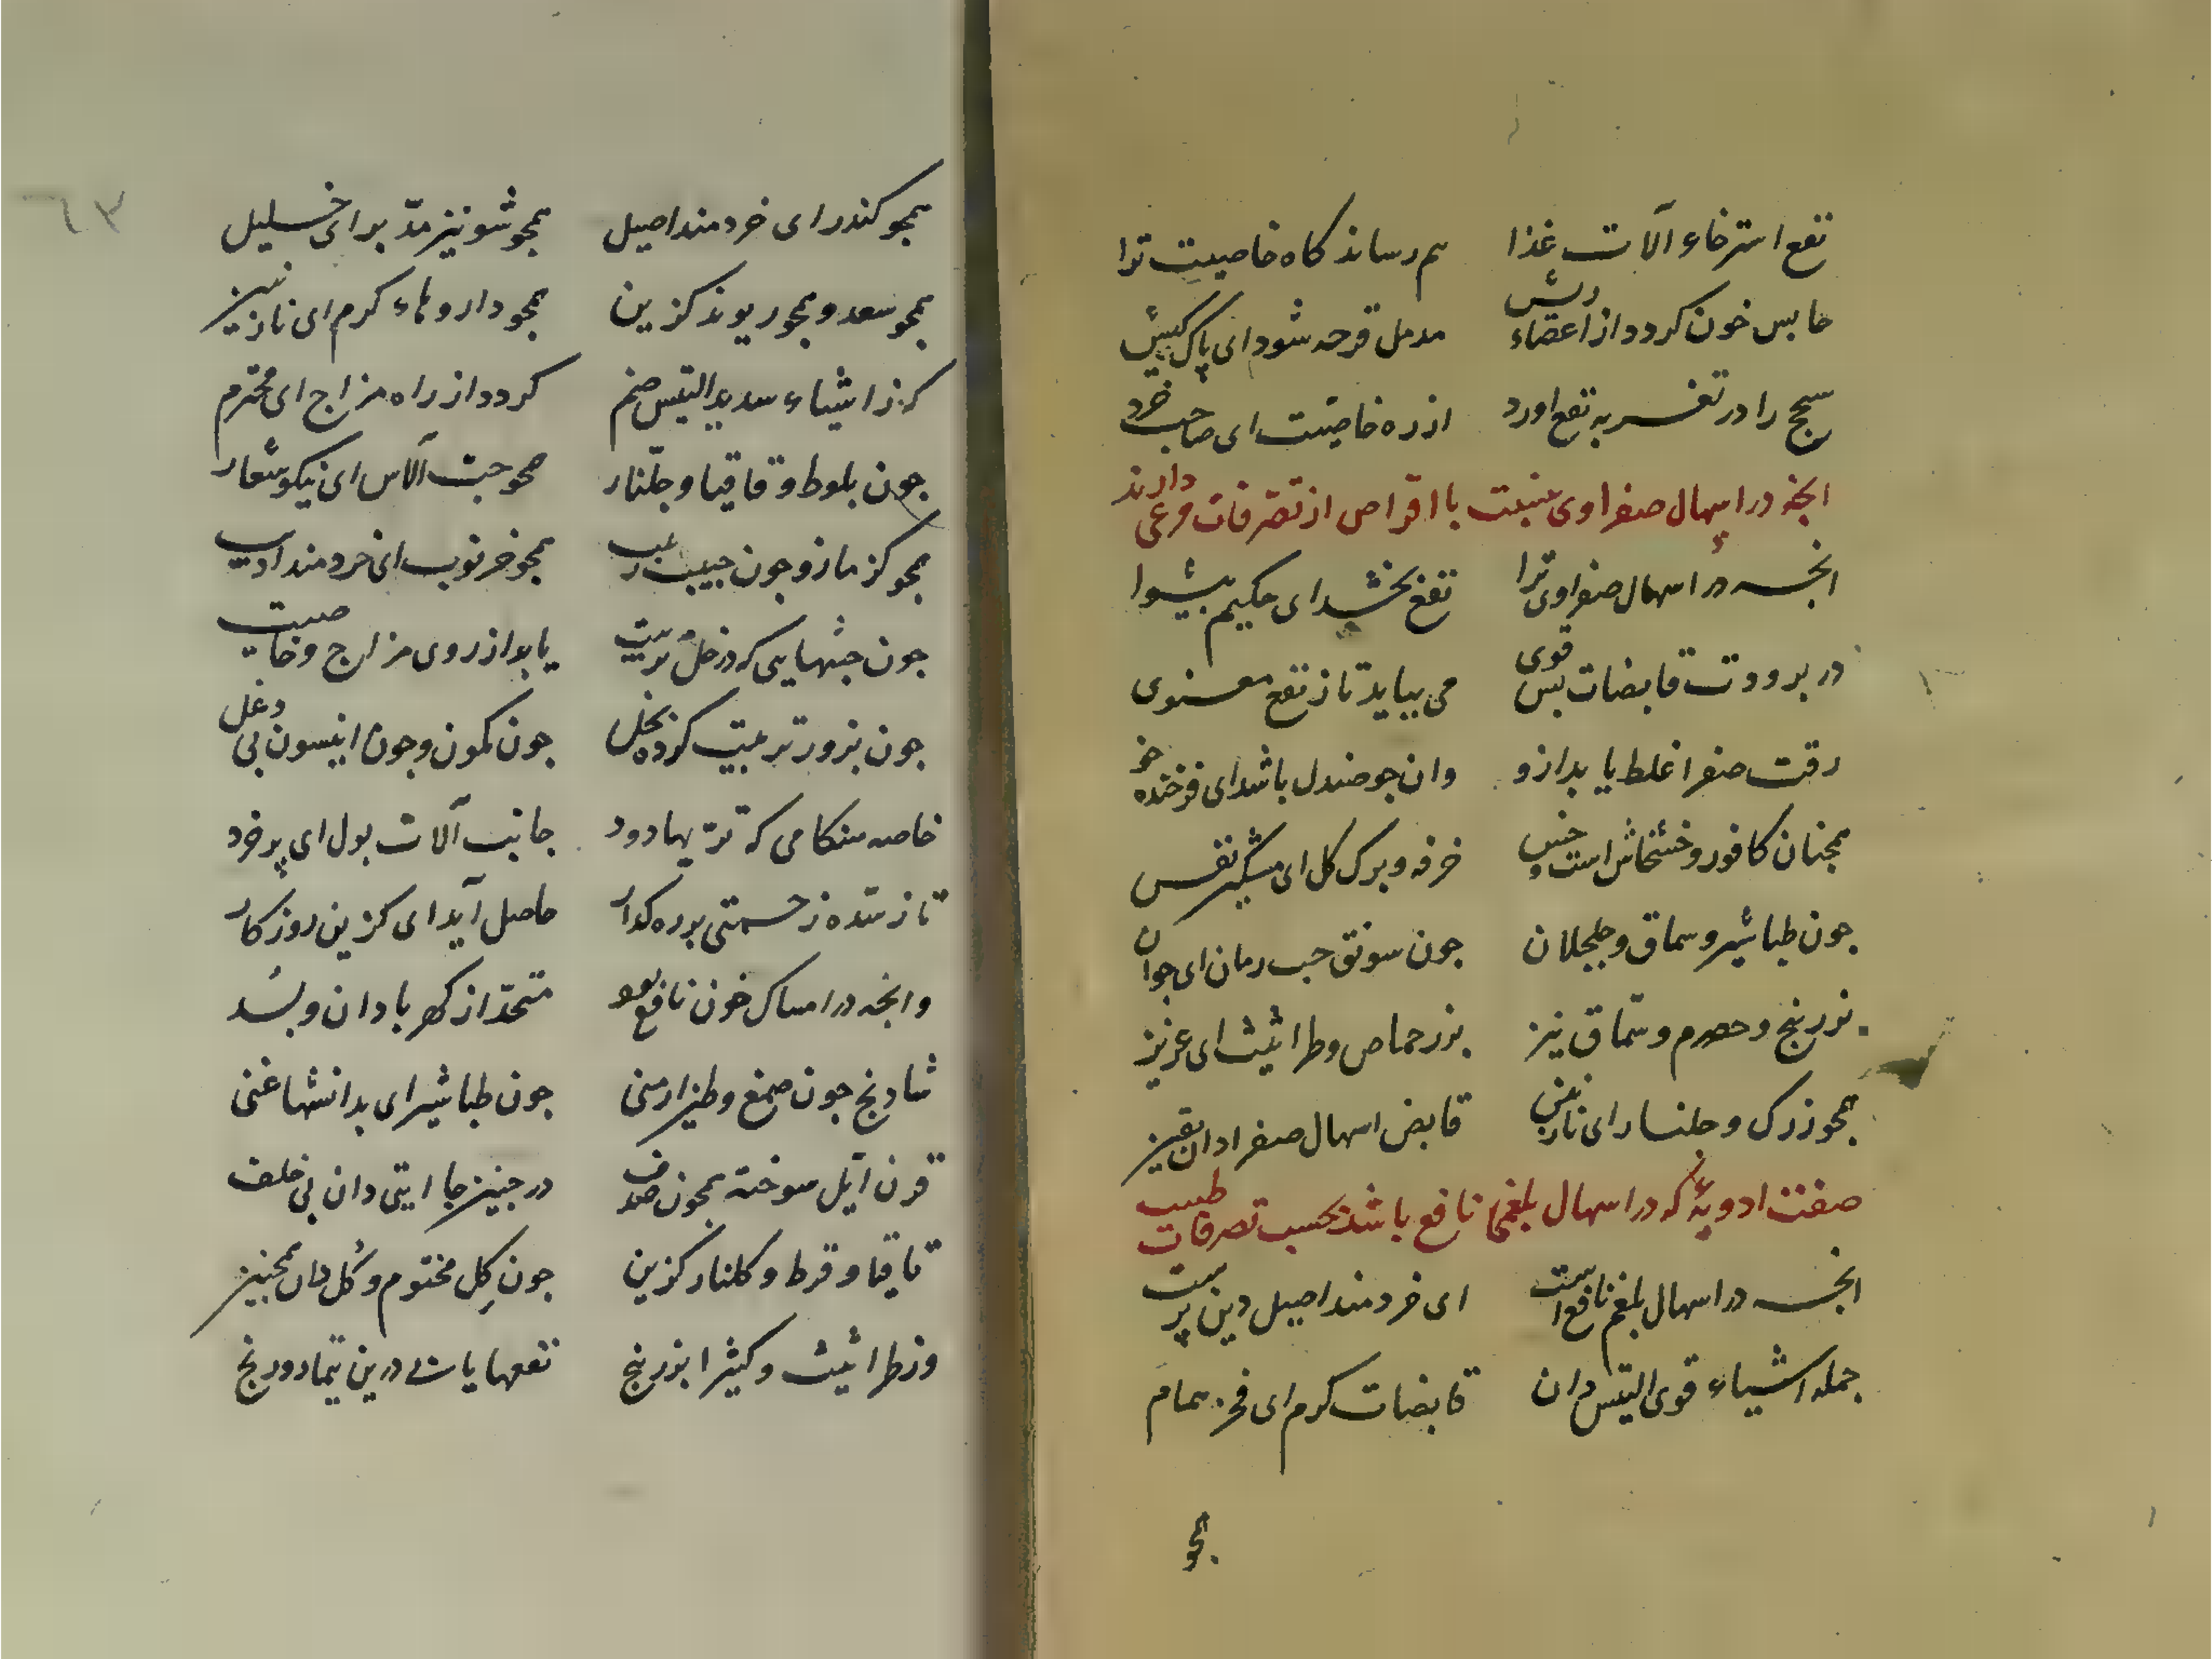 نفع استرخاء آلات غذا هم رساند کاه خاصیت ترا
حابس خون کردد از اعضاء ریش مدمل قرحه شود ای پاک کیش
سحج را در تغسر به نفع اورد از ره خاصیت ای صاحب خرد
انجه در اسهال صفراوی با اقراص از تصرفات مرعی دارند
انجه در اسهال صفراوی ترا نفع بخشد ای حکیم پیشوا
در برودت قابضات بس قوی می بیاید تا ز نفع معنوی
رقت صفرا غلظ یابد ازو وان جو صندل باشد ای فرخنده خو
همجنان کافور و خشخاش است و خس خرفه و برک کل ای مشکین نفس
جون طباشیر و سماق و جلجلان جون سوتق حب رمان ای جوان
نورنج و حصرم و سماق نیز بزر حماص و طراثیث ای عزیز
همجو زرک و جلنار ای نازنین قابض اسهال صفرا دان یقین
صفت ادویهٔ که در اسهال بلغمی نافع باشد بحسب تصرفات طبیب
انجه در اسهال بلغم نافع است ای خردمند اصیل دین پرست
جمله اشیاء قوی الیبس دان قابضات کرم ای فخر
همجو
۶۳
همجو کندر ای خردمند اصیل همجو شونیز مدبر ای خلیل
همجو سعد و همجو ریوند کزین همجو داروهاء کرم ای نازنین
کز اشیاء سدید الیبس ضم کردد از راه مزاج ای محترم
جون بلوط و قاقیا و جلنار همجو حب الاس ای نیکو شعار
همجو کزمازو و جون حب زبیب همجو خرنوب ای خردمند ادیب
جون حبهایی که در خل تربیت یابد از روی مزاج و خاصیت
جون بزور تربیت کرده بخل جون کمون و جون انیسون بی دغل
خاصه هنکامی که تریها دود جانب آلات بول ای پر خرد
تا ز سده زحمتی بر ره کذار حاصل آید ای کزین روزکار
و انجه در امساک خون نافع بود متحد از کهربا دان و بسد
شادنج جون صمغ و طین ارمنی جون طباشیر ای بدانشها غنی
قرن ایل سوخته همجون صدف در جنین جا ایتی دان بی خلف
قاقیا و قرط و کلنار کزین جون کل مختوم و کل دان همجنین
وز طراثیث و کثیرا بزر بنج نفعها یابی درین تیمار و رنج